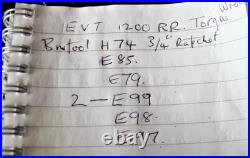 EVT 1200 RR. Torque
Britool H74 3/4" Ratchet
E85.
E79.
2 — E99
E98.
E97.